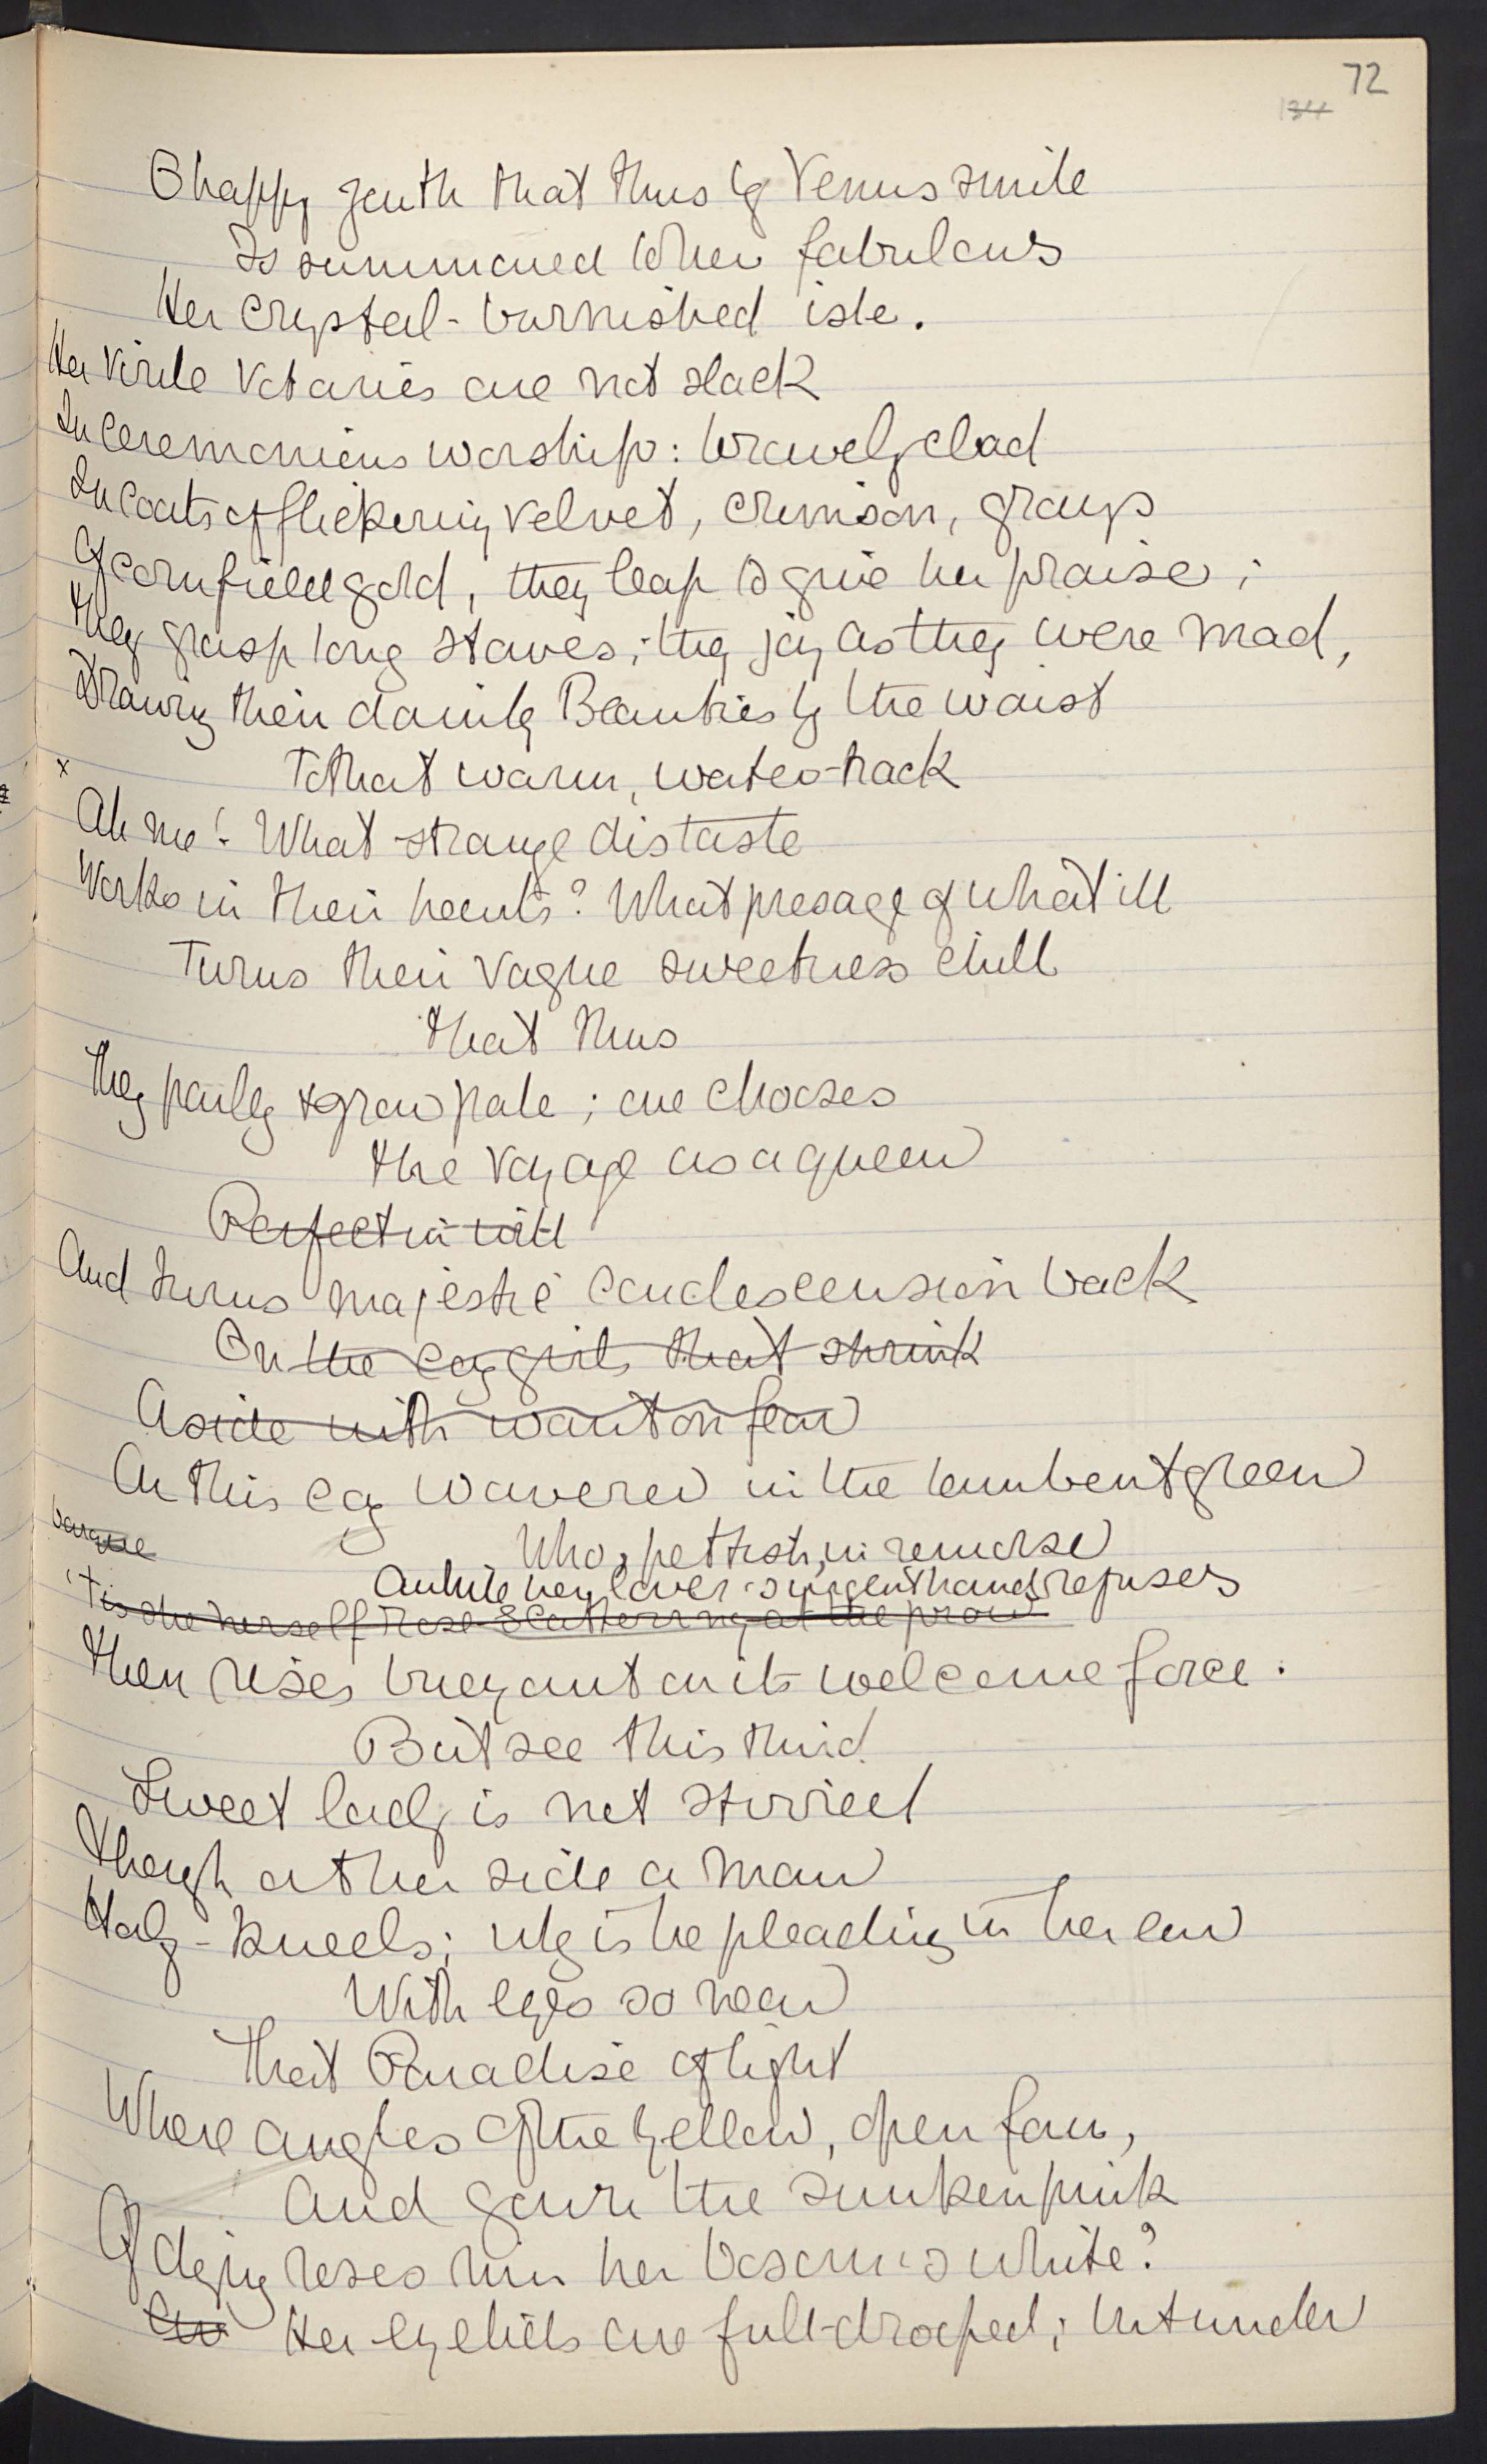 72
O happy youth that thus by Venus smile
Is summoned to her fabulous
Her crystal-burnished isle.
Her virile votaries are not slack
In ceremonious worship: bravely clad
In coats of flickering velvet, crimson, grays
Of cornfield gold, they leap to give her praise;
They grasp long staves; they joy as they were mad,
Drawing their dainty Beauties by the waist
To that warm, water-track
x
Ah me! - What strange distaste
Works in their hearts? What presage of what ill
Turns their vague sweetness chill
That thus
They parley & grow pale; one chooses
The voyage as a queen
Perfect in will
And turns majestic condescension back
On the coy girls that shrink
Aside with wanton fear
On this coy waverer in the lambent green
barque
Who, pettish, in remorse
Awhile her lover's urgent hand refuses
'Tis she herself rose-scattering at the prow
Then rises buoyant on its welcome force.
But see this third
Sweet lady is not stirred
Though at her side a man
Half-kneels; why is he pleading in her ear
With eyes so near
That Paradise of light
Where angles of the yellow, open fan,
And gown the sunken pink
Of dying roses rim her bosom's white?
Her eyelids are full-drooped; but under